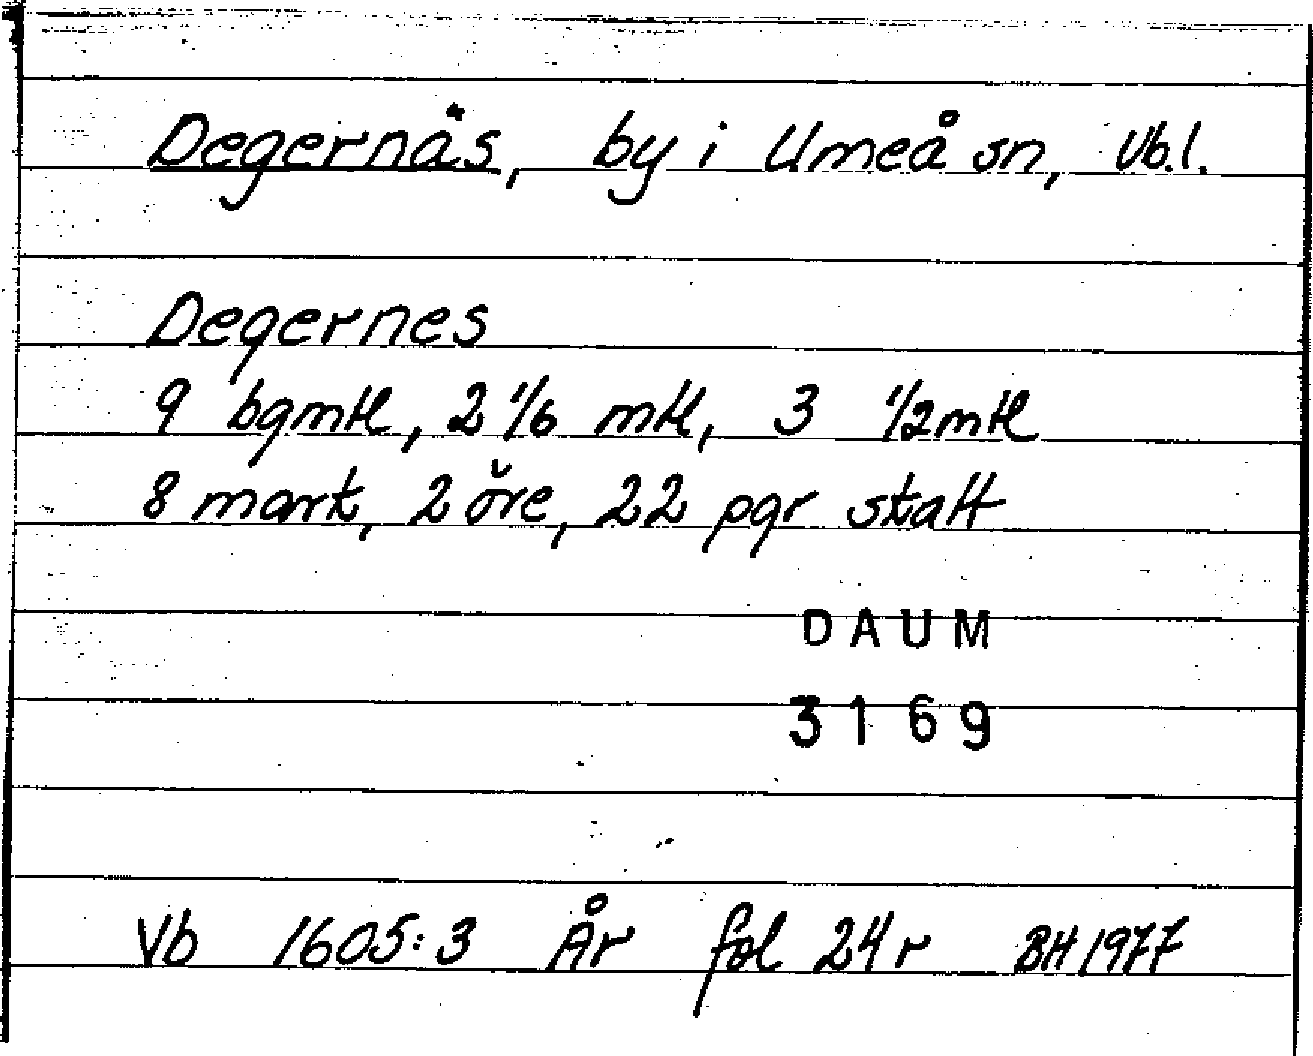 Degernäs, by i Umeå sn, Vb.l.
Degernes
9 bgmtl, 2 1/6 mtl, 3 1/2 mtl
8 mark, 2 öre, 22 pgr skatt
DAUM
3169
Vb 1605:3 År fol 24 r BH 1977